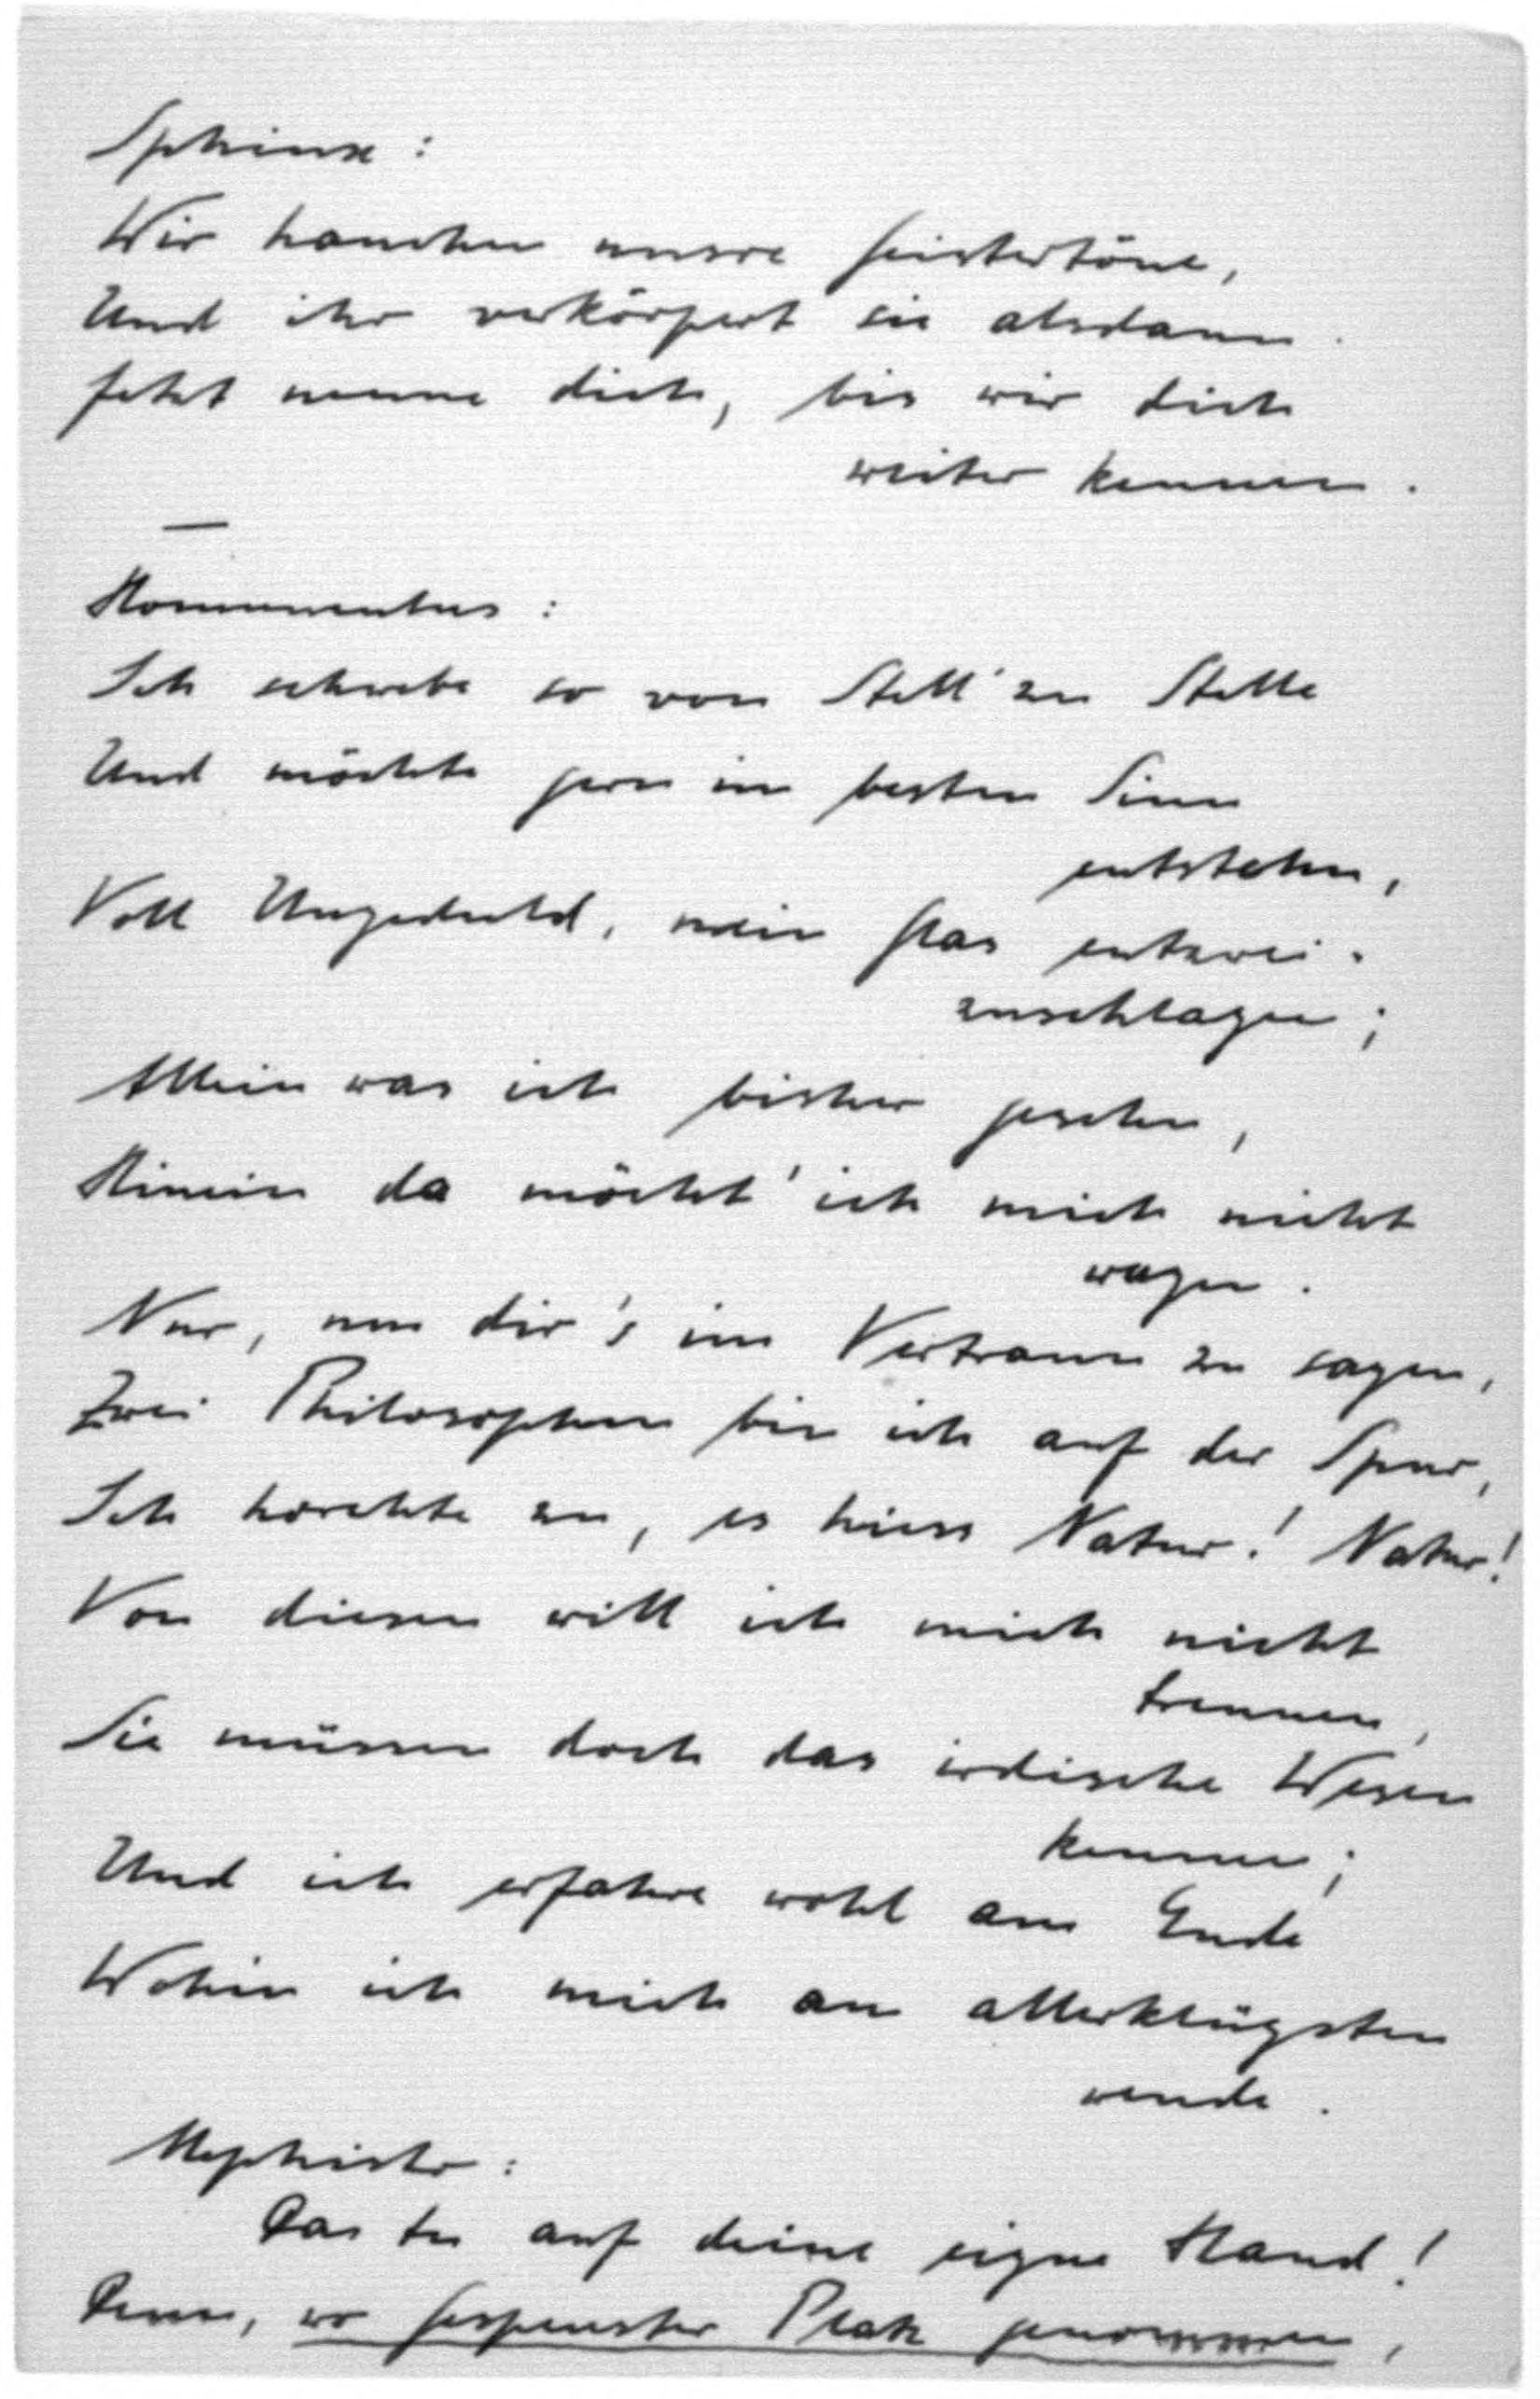 Sphinx:
Wir hauchen unsre Geistertöne,
Und ihr verkörpert sie alsdann.
Jetzt nenne dich, bis wir dich
weiter kennen.
—
Homunculus:
Ich schwebe so von Stell' zu Stelle
Und möchte gern im besten Sinn
entstehn,
Voll Ungeduld, mein Glas entzwei-
zuschlagen;
Allein was ich bisher gesehn,
Hinein da möcht' ich mich nicht
wagen.
Nur, um dir's im Vertraun zu sagen,
Zwei Philosophen bin ich auf der Spur,
Ich horchte zu, es hiess Natur! Natur!
Von diesen will ich mich nicht
trennen,
Sie müssen doch das irdische Wesen
kennen;
Und ich erfahre wohl am Ende
Wohin ich mich am allerklügsten
wende.
Mephisto:
Das tu auf deine eigne Hand!
Denn, wo Gespenster Platz genommen,